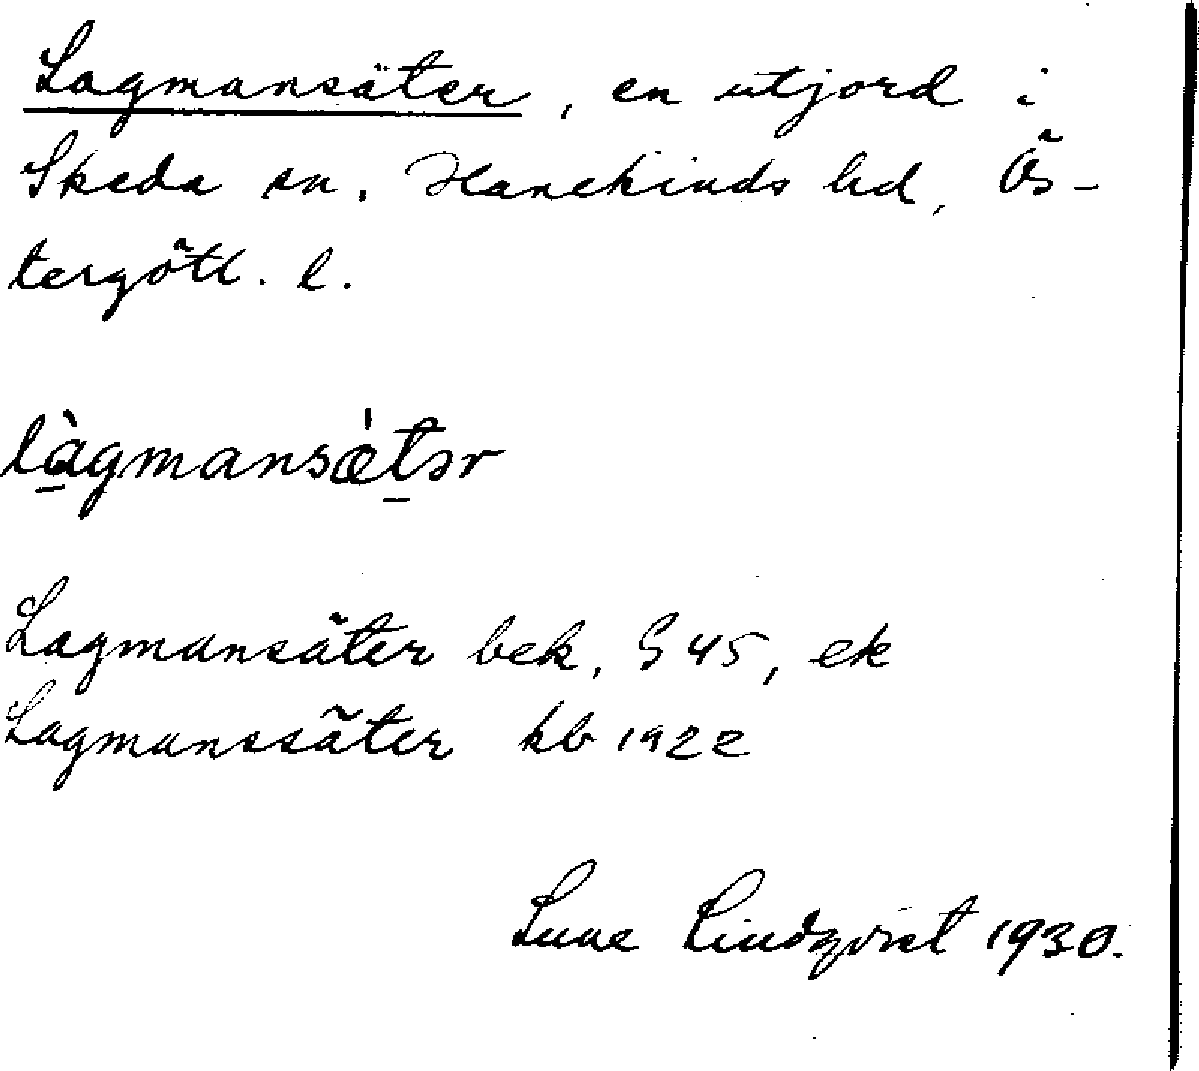 Lagmansäter, en utjord i
Skeda sn. Hanekinds hd, Ös-
tergötl. l.
làgmansæ̀tər
Lagmansäter bek. § 45, ek
Lagmanssäter kb 1922
Sune Lindqvist 1930.